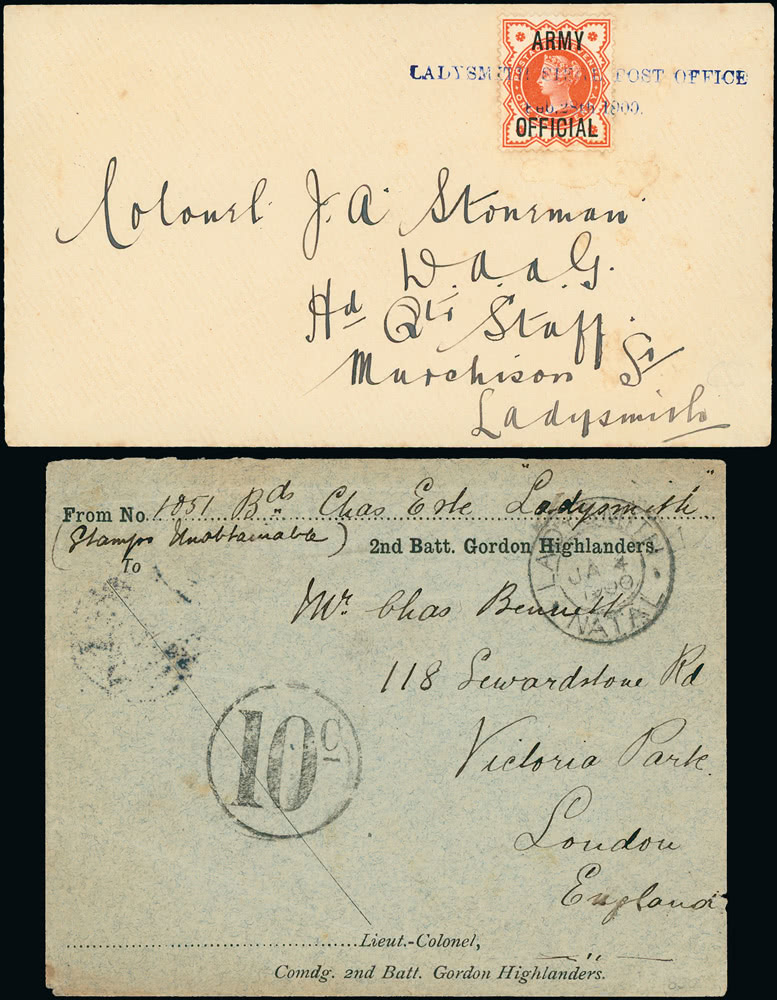 ARMY
LADYSMITH POST OFFICE
Feb. 28th. 1900.
OFFICIAL
Colonel J. A. Stoneman
D. a. a. G.
Hd Qts Staff.
Murchison St
Ladysmith
From No. 1851 Bds Chas Esle "Ladysmith"
(Stamps Unobtainable) 2nd Batt. Gordon Highlanders.
To
LADYSMITH
JA 4
1900
NATAL
Mr. Chas Bennett
118 Sewardstone Rd
Victoria Park
London
England
10c
Lieut.-Colonel,
Comdg. 2nd Batt. Gordon Highlanders.